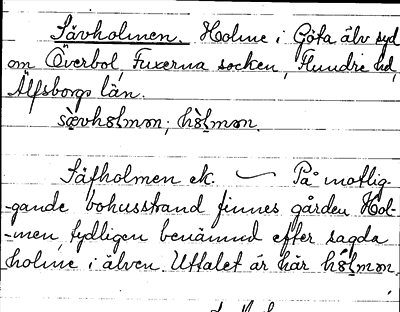 Sävholmen. Holme i Göta älv syd
om Överbol, Fuxerna socken, Flundre hd,
Älfsborgs län.
sæ̀vhɵlmən, hɵ̀lmən.
Säfholmen ek. — På motlig-
-gande bohusstrand finnes gården Hol-
-men, tydligen benämnd efter sagda
holme i älven. Uttalet är här hɵ́lmən.